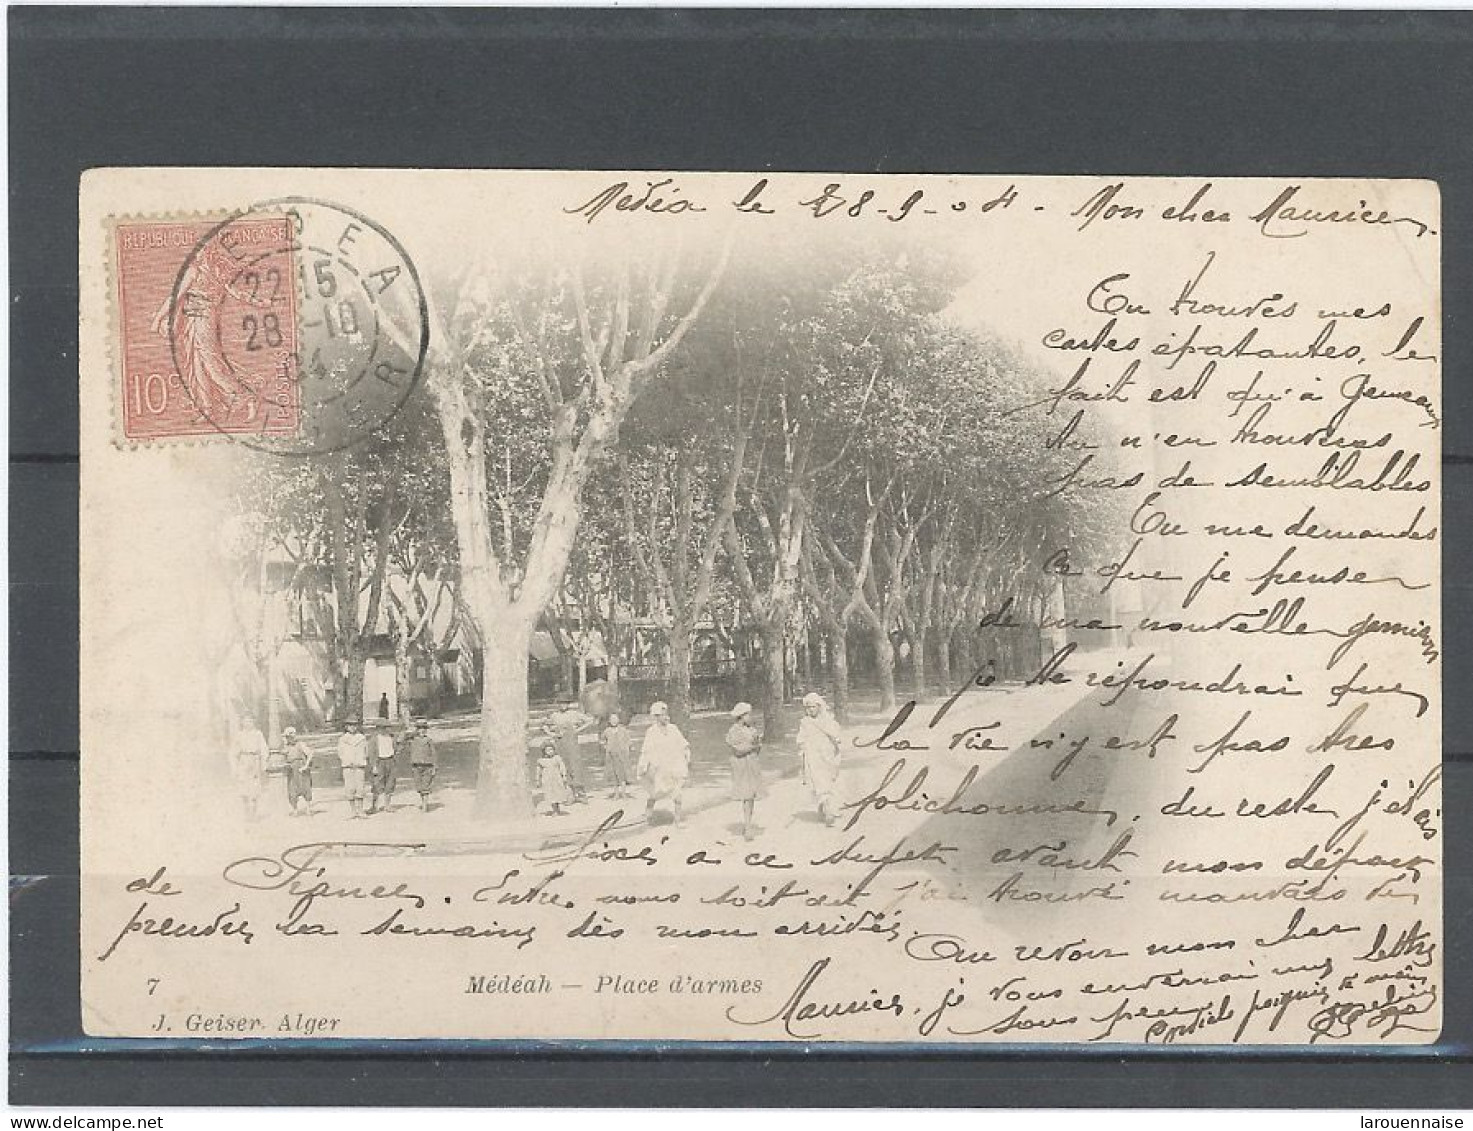 Médéa le 28-9-04 - Mon cher Maurice
REPUBLIQUE FRANÇAISE
10c
POSTES
MEDEA
22 15
28 -10
04
ALGER
Tu trouves mes
cartes épatantes, le
fait est qu'à Gemeaux
tu n'en trouveras
pas de semblables
Tu me demandes
ce que je pense
de ma nouvelle garnison
je te répondrai que
la vie n'y est pas tres
folichonne, du reste j'étais
fixé à ce sujet avant mon départ
de France. Entre nous soit dit j'ai trouvé mauvais de
prendre la semaine dès mon arrivée.
Au revoir mon cher
Maurice, je vous enverrai une lettre
sous peu
7 Médéah — Place d'armes
J. Geiser. Alger
larouennaise